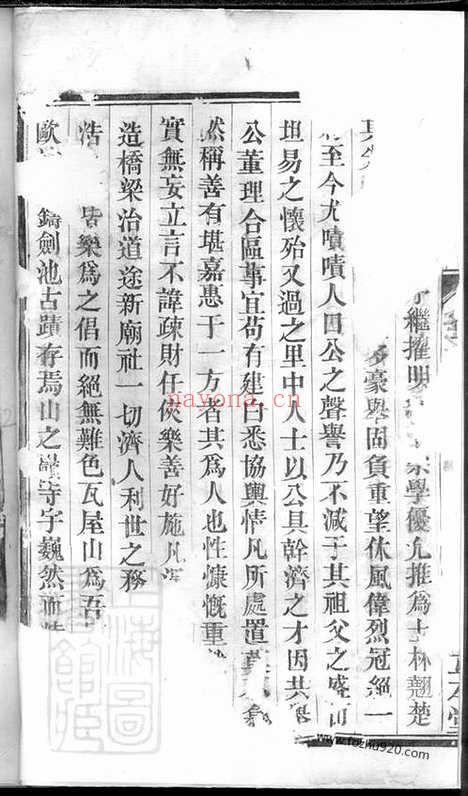 繼擢明
學優允推為士林翹楚
豪與固負重望休風偉烈冠絕一
至今尤嘖嘖人口公之聲譽乃不減于其祖父之盛而
坦易之懷殆又過之里中人士以公具幹濟之才因共
公董理合區事宜苟有建白悉協輿情凡所處置
然稱善有堪嘉惠于一方者其為人也性慷慨重
實無妄立言不諱疎財任俠樂善好施凡
造橋梁治道途新廟社一切濟人利世之務
浩
皆樂為之倡而絕無難色瓦屋山為吾
歐
鑄劍池古蹟存焉山之
寺宇巍然而
上海圖書館藏
nayona.cn
www.fozhu920.com